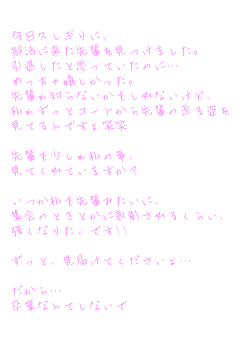 今日久しぶりに、
部活に来た先輩を見つけました。
引退したと思っていたのに…
めっちゃ嬉しかった。
先輩わ知らないかもしれないけど、
私わずっとコートから先輩の走る姿を
見てるんですよ笑笑
先輩も少しわ私の事、
見てくれていますか?
いつか私も先輩みたいに、
集会のときとかに表彰されるくらい、
強くなりたいです!!
ずっと、見届けてくださいよ…
だから…
卒業なんてしないで